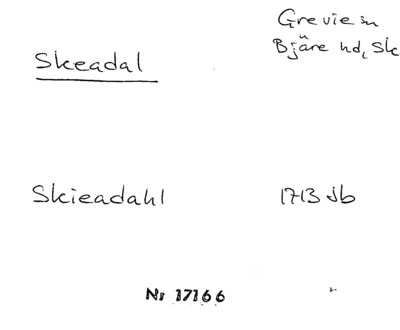 Skeadal
Grevie sn
Bjäre hd, Sk
Skieadahl
1713 Jb
Nr 17166